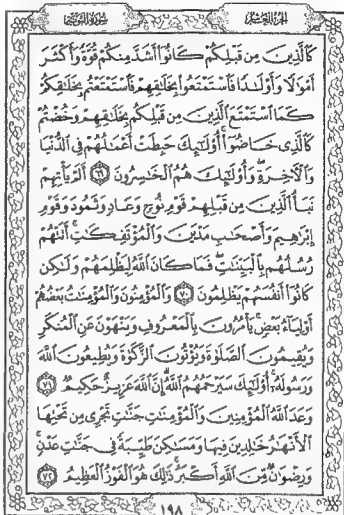 الجزء العاشر سورة التوبة
كَٱلَّذِينَ مِن قَبْلِكُمْ كَانُوٓا۟ أَشَدَّ مِنكُمْ قُوَّةً وَأَكْثَرَ
أَمْوَٰلًا وَأَوْلَٰدًا فَٱسْتَمْتَعُوا۟ بِخَلَٰقِهِمْ فَٱسْتَمْتَعْتُم بِخَلَٰقِكُمْ
كَمَا ٱسْتَمْتَعَ ٱلَّذِينَ مِن قَبْلِكُم بِخَلَٰقِهِمْ وَخُضْتُمْ
كَٱلَّذِى خَاضُوٓا۟ ۚ أُو۟لَٰٓئِكَ حَبِطَتْ أَعْمَٰلُهُمْ فِى ٱلدُّنْيَا
وَٱلْءَاخِرَةِ ۖ وَأُو۟لَٰٓئِكَ هُمُ ٱلْخَٰسِرُونَ ٦٩ أَلَمْ يَأْتِهِمْ
نَبَأُ ٱلَّذِينَ مِن قَبْلِهِمْ قَوْمِ نُوحٍ وَعَادٍ وَثَمُودَ وَقَوْمِ
إِبْرَٰهِيمَ وَأَصْحَٰبِ مَدْيَنَ وَٱلْمُؤْتَفِكَٰتِ ۚ أَتَتْهُمْ
رُسُلُهُم بِٱلْبَيِّنَٰتِ ۖ فَمَا كَانَ ٱللَّهُ لِيَظْلِمَهُمْ وَلَٰكِن
كَانُوٓا۟ أَنفُسَهُمْ يَظْلِمُونَ ٧٠ وَٱلْمُؤْمِنُونَ وَٱلْمُؤْمِنَٰتُ بَعْضُهُمْ
أَوْلِيَآءُ بَعْضٍ ۚ يَأْمُرُونَ بِٱلْمَعْرُوفِ وَيَنْهَوْنَ عَنِ ٱلْمُنكَرِ
وَيُقِيمُونَ ٱلصَّلَوٰةَ وَيُؤْتُونَ ٱلزَّكَوٰةَ وَيُطِيعُونَ ٱللَّهَ
وَرَسُولَهُۥٓ ۚ أُو۟لَٰٓئِكَ سَيَرْحَمُهُمُ ٱللَّهُ ۗ إِنَّ ٱللَّهَ عَزِيزٌ حَكِيمٌ ٧١
وَعَدَ ٱللَّهُ ٱلْمُؤْمِنِينَ وَٱلْمُؤْمِنَٰتِ جَنَّٰتٍ تَجْرِى مِن تَحْتِهَا
ٱلْأَنْهَٰرُ خَٰلِدِينَ فِيهَا وَمَسَٰكِنَ طَيِّبَةً فِى جَنَّٰتِ عَدْنٍ ۚ
وَرِضْوَٰنٌ مِّنَ ٱللَّهِ أَكْبَرُ ۚ ذَٰلِكَ هُوَ ٱلْفَوْزُ ٱلْعَظِيمُ ٧٢
١٩٨